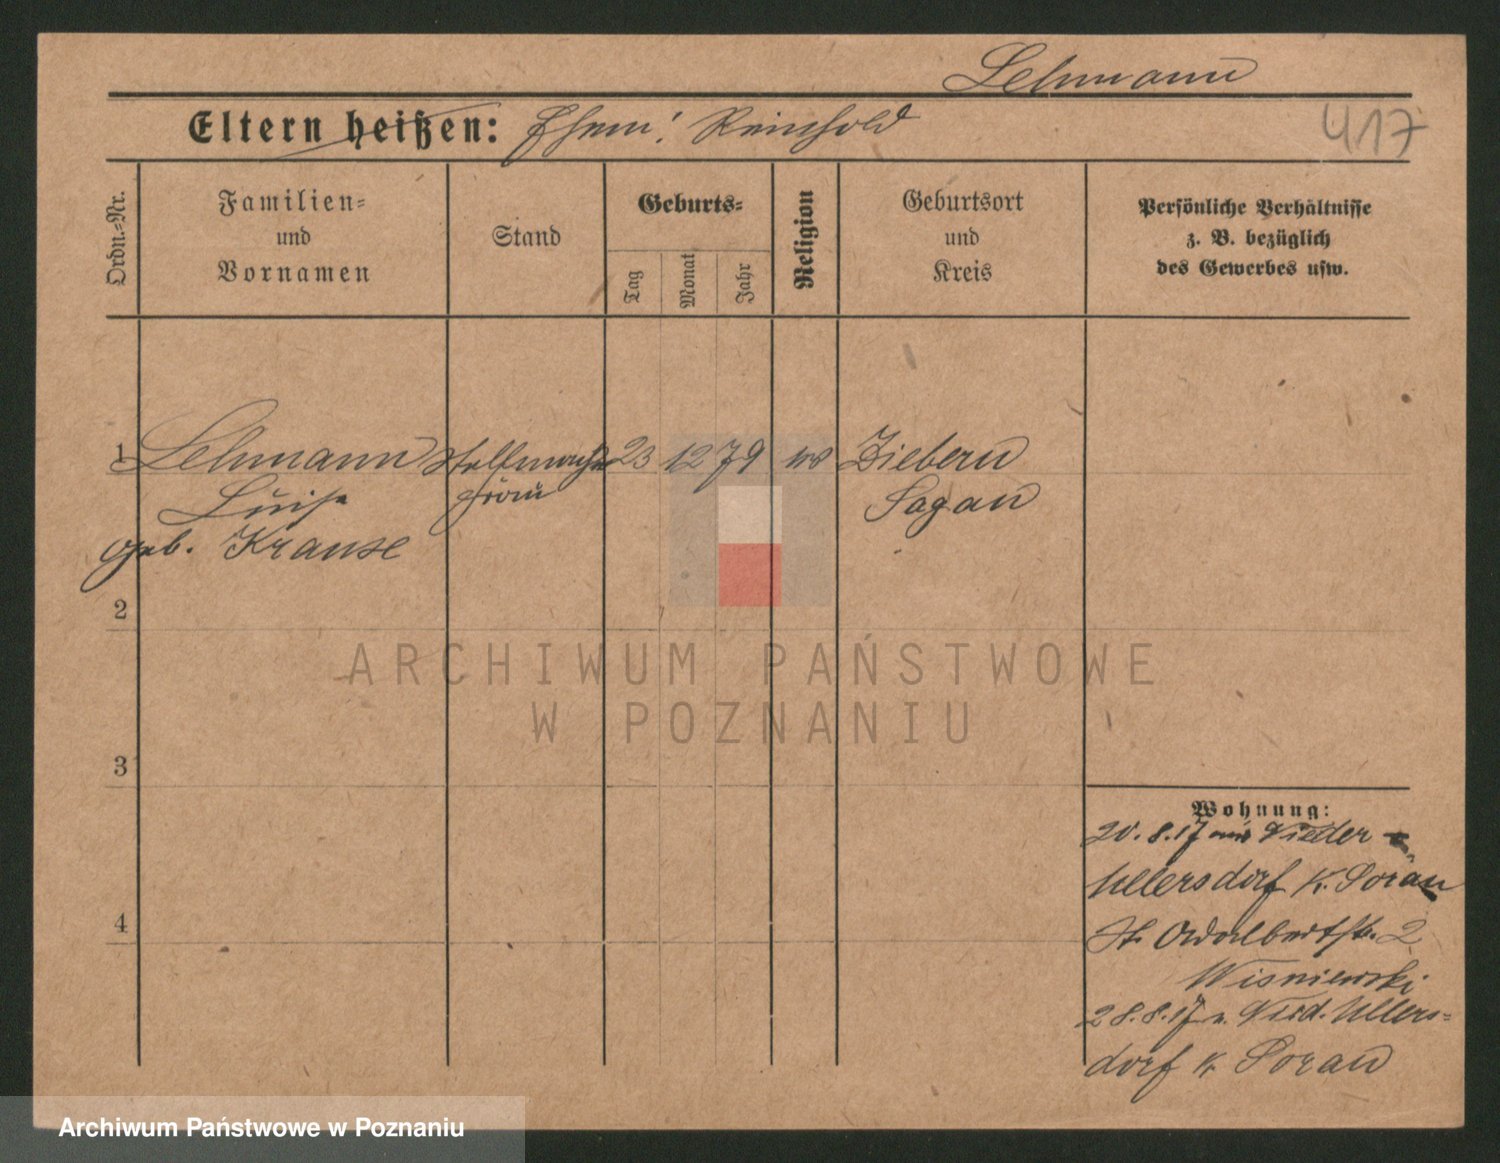 Lehmann
Eltern heißen: Ehem: Reinhold
417
Ordn.-Nr.
Familien-
und
Vornamen
Stand
Geburts-
Tag
Monat
Jahr
Religion
Geburtsort
und
Kreis
Persönliche Verhältnisse
z. B. bezüglich
des Gewerbes usw.
1 Lehmann Stellmacher 23 12 79 ev Ziebern
Luise frau Sagan
geb. Krause
2
ARCHIWUM PAŃSTWOWE
W POZNANIU
3
Wohnung:
20.8.17 aus Nieder
Ullersdorf K. Sorau
St. Adalbertstr. 2
4
Wisniewski
28.8.17 n. Nied. Ullers-
dorf K. Sorau
Archiwum Państwowe w Poznaniu